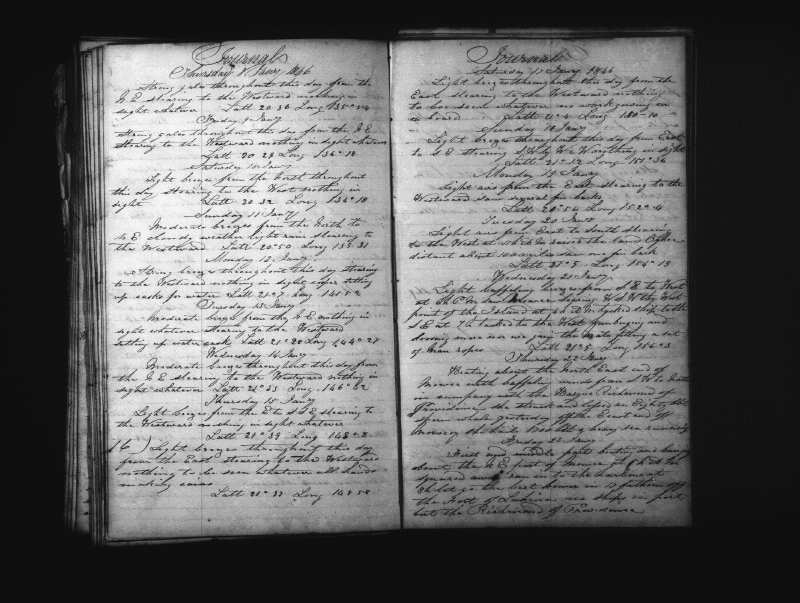 Journal
Thursday 8 Janry 1846
Strong gales throughout this day from the
N E stearing to the Westward nothing in
sight whatever Latt 20-36 Long 135-54
Friday 9 Janry
Strong gales throughout this day from the N E
Stearing to the Westward nothing in sight whatever
Latt 20 29 Long 136-19
Saturday 10 Janry
Light breezes from the North throughout
this day Stearing to the West nothing in
sight Latt 20 32 Long 136-18
Sunday 11 Janry
Moderate breezes from the North to
N E cloudy weather light rain Stearing to
the Westward Latt 20-50 Long 138 31
Monday 12 Janry
Strong breezes throughout this day stearing
to the Westward nothing in sight setting
up casks for water Latt 21-7 Long 141
Tuesday 13 Janry
Moderate breezes from the N E nothing in
sight whatever Stearing to the Westward
setting up water casks Latt 21-20 Long 144-27
Wednesday 14 Janry
Moderate breezes throughout this day from
the N E stearing to the Westward nothing in
sight whatever Latt 21-33 Long 146-42
Thursday 15 Janry
Light breezes from the E to S S E stearing to
the Westward nothing in sight whatever
Latt 21-39 Long 148-2
16 ) Light breezes throughout this day
from the East stearing to the Westward
nothing to be seen whatever all hands
making
Latt 21-33 Long 148 58
Journal
Saturday 17 Janry 1846
Light breezes throughout this day from the
East stearing to the Westward nothing
to be seen whatever no work going on
on board Latt 21-4 Long 150-10
Sunday 18 Janry
Light breezes throughout this day from East
to S E Stearing nothing in sight
Latt 21-12 Long 151-36
Monday 19 Janry
Light airs from the East stearing to the
Westward saw several
Latt 20-54 Long 152-4
Tuesday 20 Janry
Light airs from East to South Stearing
to the West at raised the land
distant about 100 miles saw
Latt 21-8 Long 154-19
Wednesday 21 Janry
Light baffling breezes from S E to West
at saw Mowee bearing the West
point of the Island at tacked ship to the
S E at 7 tacked to the West
the Mate fitting a set
of man ropes Latt 21-5 Long 156-3
Thursday 22 Janry
Beating about the North East end of
Mowee with baffling winds from
in company with the Barque Richmond of
Providence she struck and a
sperm whale yesterday off the East end of
a heavy sea running
Friday 23 Janry
First and middle parts beating and
about the N E part of Mowee
squared and ran in to the
in 13 fathoms off
the Port of Lahaina no ships in port
but the Richmond of Providence